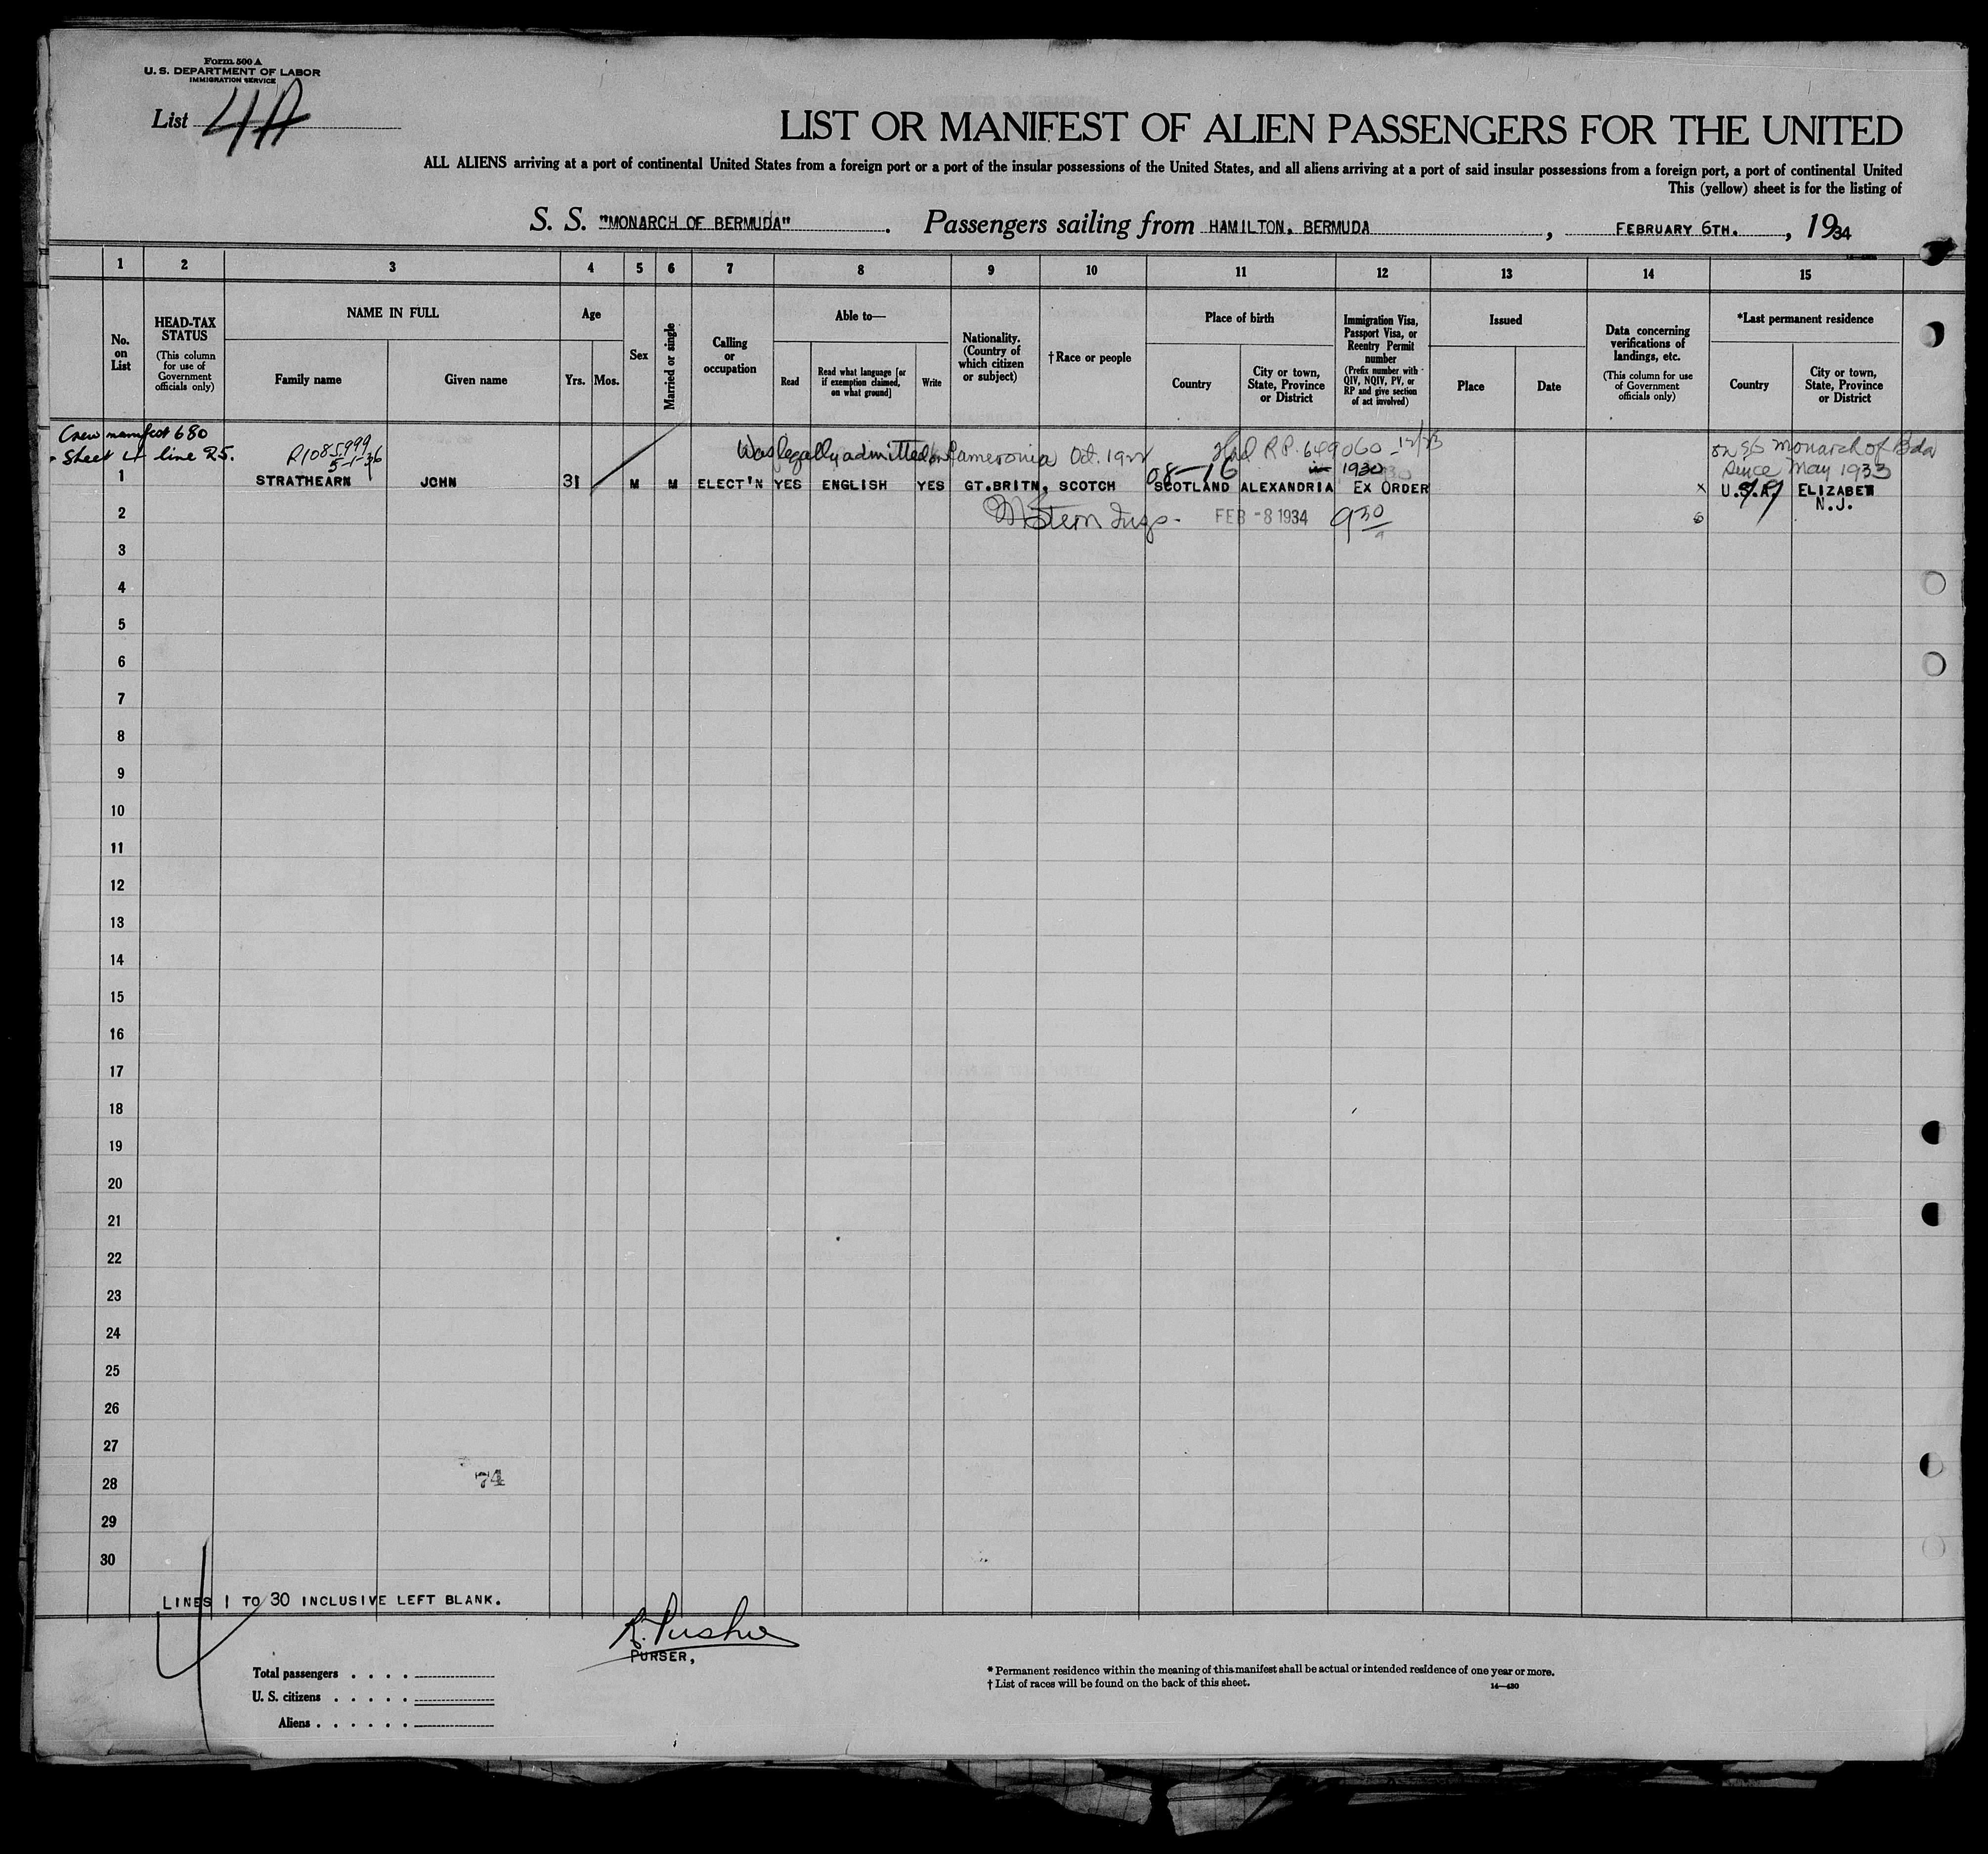 Form 500 A
U. S. DEPARTMENT OF LABOR
IMMIGRATION SERVICE
List 4A
LIST OR MANIFEST OF ALIEN PASSENGERS FOR THE UNITED
ALL ALIENS arriving at a port of continental United States from a foreign port or a port of the insular possessions of the United States, and all aliens arriving at a port of said insular possessions from a foreign port, a port of continental United
This (yellow) sheet is for the listing of
S. S. "MONARCH OF BERMUDA". Passengers sailing from HAMILTON, BERMUDA, FEBRUARY 6TH., 1934
1 2 3 4 5 6 7 8 9 10 11 12 13 14 15
No. on List
HEAD-TAX STATUS
(This column for use of Government officials only)
NAME IN FULL
Family name
Given name
Age
Yrs. Mos.
Sex
Married or single
Calling or occupation
Able to—
Read
Read what language [or if exemption claimed, on what ground]
Write
Nationality. (Country of which citizen or subject)
†Race or people
Place of birth
Country
City or town, State, Province or District
Immigration Visa, Passport Visa, or Reentry Permit number
(Prefix number with QIV, NQIV, PV, or RP and give section of act involved)
Issued
Place
Date
Data concerning verifications of landings, etc.
(This column for use of Government officials only)
*Last permanent residence
Country
City or town, State, Province or District
Crew manifest 680
Sheet 4 line 25.
R1085999
5-1-36
Was legally admitted Cameronia Oct. 192
Had R.P. 649060 - 12/23
1930
on SS Monarch of Bda
since May 1933
08-16
1 STRATHEARN JOHN 31 M M ELECT'N YES ENGLISH YES GT.BRITN, SCOTCH SCOTLAND ALEXANDRIA EX ORDER U.S.A. ELIZABETH
N.J.
2 Stern Insp. FEB -8 1934 9 30
3
4
5
6
7
8
9
10
11
12
13
14
15
16
17
18
19
20
21
22
23
24
25
26
27
28 74
29
30
LINES 1 TO 30 INCLUSIVE LEFT BLANK.
PURSER,
Total passengers . . . .
U. S. citizens . . . . .
Aliens . . . . . .
* Permanent residence within the meaning of this manifest shall be actual or intended residence of one year or more.
† List of races will be found on the back of this sheet.
14—430